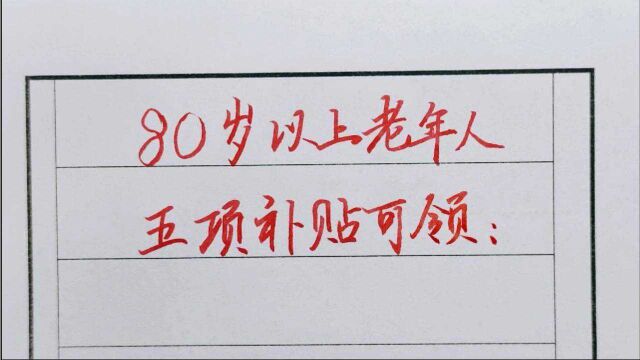 80岁以上老年人
五项补贴可领：